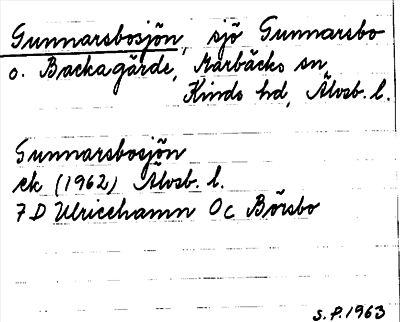 Gunnarsbosjön, sjö Gunnarsbo
o. Backagärde, Marbäcks sn,
Kinds hd, Älvsb. l.
Gunnarsbosjön
ek (1962) Älvsb. l.
7 D Ulricehamn Oc Börsbo
S. P. 1963